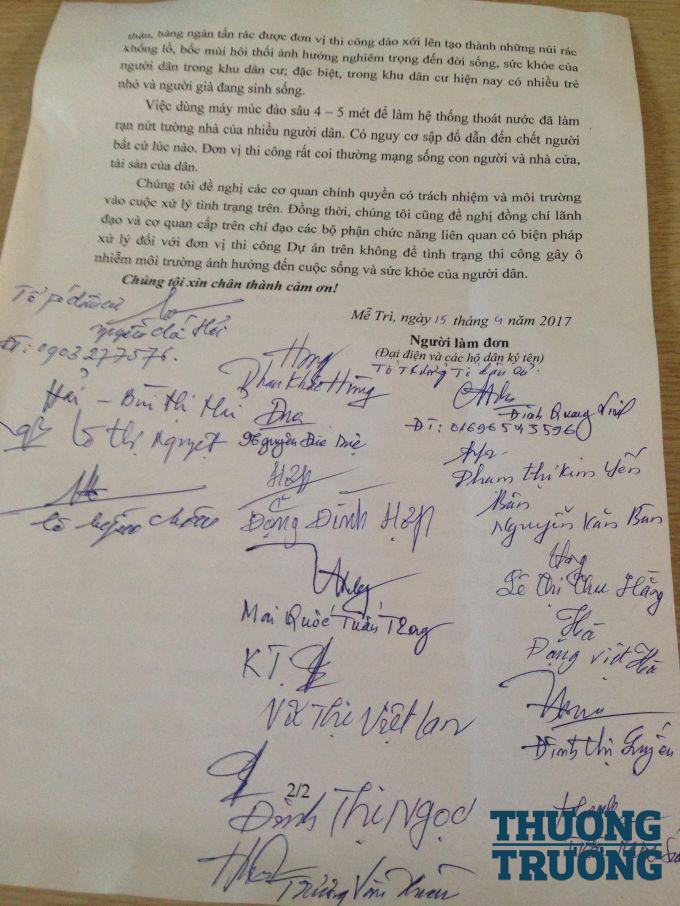 thận, hàng ngàn tấn rác được đơn vị thi công đào xới lên tạo thành những núi rác
khổng lồ, bốc mùi hôi thối ảnh hưởng nghiêm trọng đến đời sống, sức khỏe của
người dân trong khu dân cư; đặc biệt, trong khu dân cư hiện nay có nhiều trẻ
nhỏ và người già đang sinh sống.
Việc dùng máy múc đào sâu 4 – 5 mét để làm hệ thống thoát nước đã làm
rạn nứt tường nhà của nhiều người dân. Có nguy cơ sập đổ dẫn đến chết người
bất cứ lúc nào. Đơn vị thi công rất coi thường mạng sống con người và nhà cửa,
tài sản của dân.
Chúng tôi đề nghị các cơ quan chính quyền có trách nhiệm và môi trường
vào cuộc xử lý tình trạng trên. Đồng thời, chúng tôi cũng đề nghị đồng chí lãnh
đạo và cơ quan cấp trên chỉ đạo các bộ phận chức năng liên quan có biện pháp
xử lý đối với đơn vị thi công Dự án trên không để tình trạng thi công gây ô
nhiễm môi trường ảnh hưởng đến cuộc sống và sức khỏe của người dân.
Chúng tôi xin chân thành cảm ơn!
Mễ Trì, ngày 15 tháng 4 năm 2017
Người làm đơn
(Đại diện và các hộ dân ký tên)
Tổ trưởng Tổ dân cư
Đinh Quang
ĐT: 01696543596
Phạm Thị Kim Yến
Bân
Nguyễn Văn Bân
Lê Thị Thu Hằng
Hà
Đặng Việt Hà
Đinh Thị Quyến
Tổ phó dân cư
ĐT: 0903277576.
Hải - Bùi Thị Hải
Thị Nguyệt
Hùng
Phan Khắc Hùng
Nguyễn Đức Duệ
Hợp
Đặng Đình Hợp
Mai Quốc Tuấn Trang
KT
Vũ Thị Việt Lan
2/2
Đinh Thị Ngọc
Trương Văn
THƯƠNG
TRƯỜNG